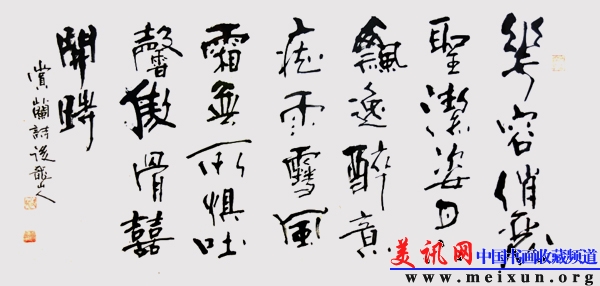 容俏麗
聖潔姿
飄逸醉意
痴雨雪風
霜無所惧吐
馨傲骨囍
開時
賞蘭詩後龍山人
美讯网
中国书画收藏频道
www.meixun.org